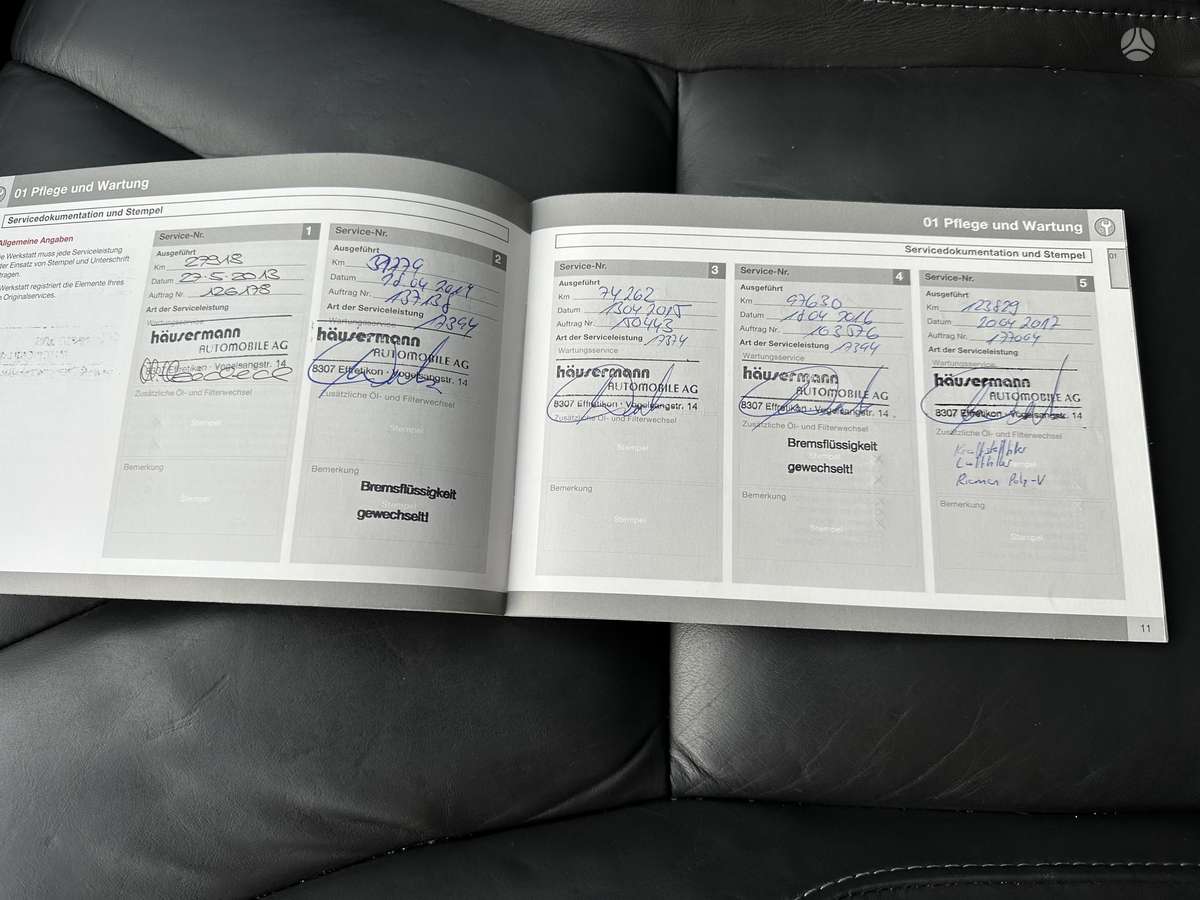 01 Pflege und Wartung
Servicedokumentation und Stempel
Allgemeine Angaben
Werkstatt muss jede Serviceleistung
der Einsatz von Stempel und Unterschrift
Werkstatt registriert die Elemente Ihres
Originalservices.
Service-Nr. 1
Ausgeführt
Km 27918
Datum 27-5.2013
Auftrag Nr. 126178
Art der Serviceleistung
Wartungsservice
häusermann
AUTOMOBILE AG
Effretikon · Vogelsangstr. 14
Zusätzliche Öl- und Filterwechsel
Stempel
Bemerkung
Stempel
Service-Nr. 2
Ausgeführt
Km
Datum 28.04.2014
Auftrag Nr. 137138
Art der Serviceleistung
Wartungsservice 17394
häusermann
AUTOMOBILE AG
8307 Effretikon · Vogelsangstr. 14
Zusätzliche Öl- und Filterwechsel
Stempel
Bemerkung
Bremsflüssigkeit
gewechselt!
01 Pflege und Wartung
Servicedokumentation und Stempel
01
Service-Nr. 3
Ausgeführt
Km 74262
Datum 13.04.2015
Auftrag Nr. 150443
Art der Serviceleistung
Wartungsservice
häusermann
AUTOMOBILE AG
8307 Effretikon · Vogelsangstr. 14
Zusätzliche Öl- und Filterwechsel
Stempel
Bemerkung
Stempel
Service-Nr. 4
Ausgeführt
Km 97630
Datum 18.04.2016
Auftrag Nr. 163576
Art der Serviceleistung 17394
Wartungsservice
häusermann
AUTOMOBILE AG
8307 Effretikon · Vogelsangstr. 14
Zusätzliche Öl- und Filterwechsel
Bremsflüssigkeit
gewechselt!
Bemerkung
Stempel
Service-Nr. 5
Ausgeführt
Km 123829
Datum 20.04.2017
Auftrag Nr. 177064
Art der Serviceleistung
Wartungsservice
häusermann
AUTOMOBILE AG
8307 Effretikon · Vogelsangstr. 14
Zusätzliche Öl- und Filterwechsel
Kraftstofffilter
Luftfilter
Riemen Poly-V
Bemerkung
Stempel
11